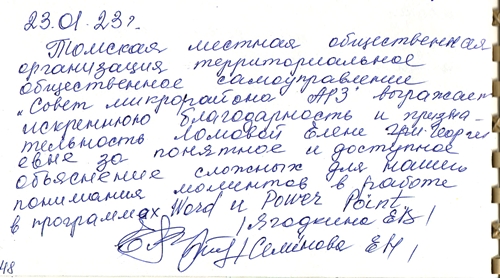 23.01.23 г.
Томская местная общественная
организация территориальное
общественное самоуправление
"Совет микрорайона АРЗ" выражает
искреннюю благодарность и призна-
тельность Ломовой Елене Георги
евне за понятное и доступное
объяснение сложных для нашего
понимания моментов в работе
в программах Word и Power Point.
/Ягодкина ЕВ/
/Семёнова ЕН/
48